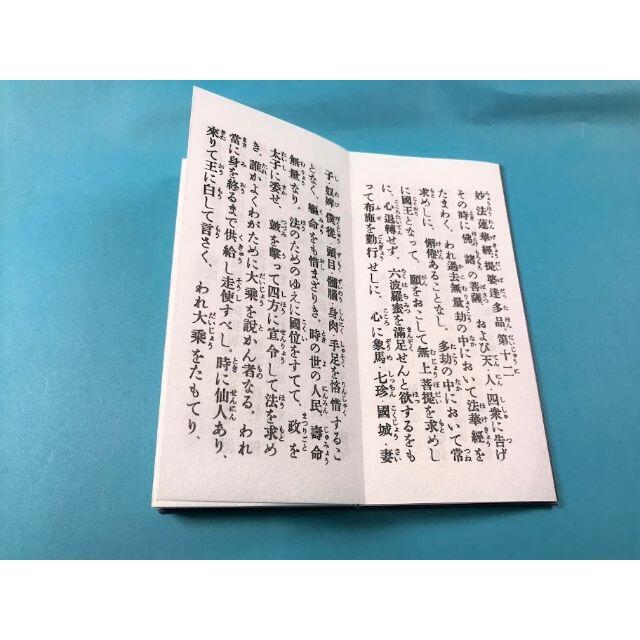 妙法蓮華經提婆達多品第十二
その時に佛、諸の菩薩、および天人四衆に告げ
たまわく、われ過去無量劫の中において法華經を
求めしに、懈倦あることなし。多劫の中において常
に國王となって、願をおこして無上菩提を求めし
に、心退轉せず。六波羅蜜を滿足せんと欲するをも
って布施を勤行せしに、心に象馬・七珍・國城・妻
子・奴婢・僕從・頭目・髓腦・身肉・手足を悋惜するこ
となく、軀命をも惜まざりき。時の世の人民、壽命
無量なり。法のためのゆえに國位をすてて、政を
太子に委せ、皷を擊って四方に宣令して法を求め
き。誰かよくわがために大乘を說かん者なる。われ
常に身を終るまで供給し走使すべし。時に仙人あり、
來りて王に白して言さく、われ大乘をたもてり、